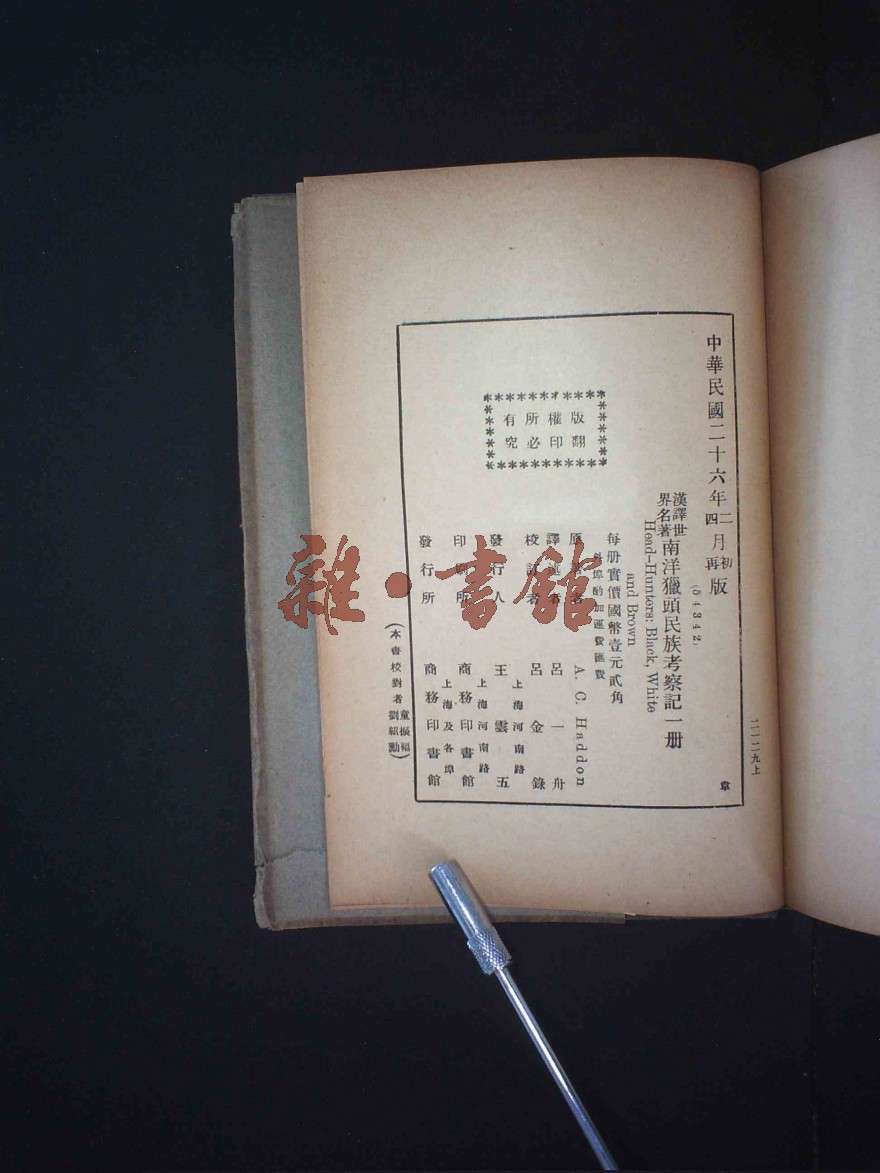 中華民國二十六年二月初版
四再
(54342)
漢譯世界名著
南洋獵頭民族考察記一册
Head-Hunters: Black, White
and Brown
每册實價國幣壹元貳角
外埠酌加運費匯費
版權所有
翻印必究
原著者 A. C. Haddon
譯述者 呂一舟
校訂者 呂金錄
發行人 王雲五
上海河南路
印刷所 商務印書館
上海河南路
發行所 商務印書館
上海及各埠
(本書校對者童振福劉紹勳)
二一一二九上
章
雜·書館